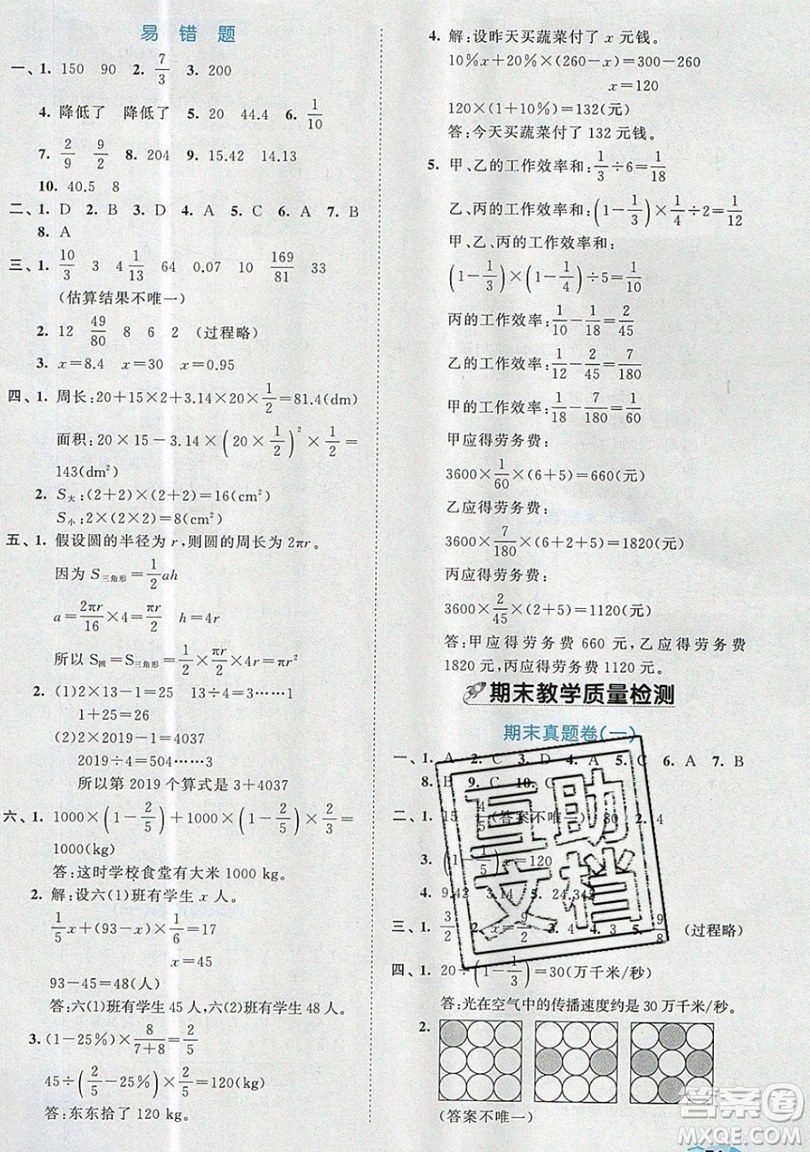 易 错 题
一、1. 150 90 2. 7/3 3. 200
4. 降低了 降低了 5. 20 44.4 6. 1/10
7. 2/9 9/2 8. 204 9. 15.42 14.13
10. 40.5 8
二、1. D 2. B 3. D 4. A 5. C 6. A 7. B
8. A
三、1. 10/3 3 4 1/13 64 0.07 10 169/81 33
(估算结果不唯一)
2. 12 49/80 8 6 2 (过程略)
3. x=8.4 x=30 x=0.95
四、1. 周长:20+15×2+3.14×20×1/2=81.4(dm)
面积:20×15-3.14×(20×1/2)²×1/2=
143(dm²)
2. S大:(2+2)×(2+2)=16(cm²)
S小:2×(2×2)=8(cm²)
五、1. 假设圆的半径为 r,则圆的周长为 2πr。
因为 S三角形=1/2ah
a=2πr/16×4=πr/2 h=4r
所以 S圆=S三角形=1/2×πr/2×4r=πr²
2. (1)2×13-1=25 13÷4=3……1
1+25=26
(2)2×2019-1=4037
2019÷4=504……3
所以第 2019 个算式是 3+4037
六、1. 1000×(1-2/5)+1000×(1-2/5)×2/3=
1000(kg)
答:这时学校食堂有大米 1000 kg。
2. 解:设六(1)班有学生 x 人。
1/5x+(93-x)×1/16=12
x=45
93-45=48(人)
答:六(1)班有学生 45 人,六(2)班有学生 48 人。
3. (1-25%)×8/(7+8)=2/5
45÷(2/5-25%)×2/5=120(kg)
答:东东拾了 120 kg。
4. 解:设昨天买蔬菜付了 x 元钱。
10%x+20%×(260-x)=300-260
x=120
120×(1+10%)=132(元)
答:今天买蔬菜付了 132 元钱。
5. 甲、乙的工作效率和:1/3÷6=1/18
乙、丙的工作效率和:(1-1/3)×1/4÷2=1/12
甲、乙、丙的工作效率和:
(1-1/3)×(1-1/4)÷5=1/10
丙的工作效率:1/10-1/18=2/45
乙的工作效率:1/12-2/45=7/180
甲的工作效率:1/18-7/180=1/60
甲应得劳务费:
3600×1/60×(6+5)=660(元)
乙应得劳务费:
3600×7/180×(6+2+5)=1820(元)
丙应得劳务费:
3600×2/45×(2+5)=1120(元)
答:甲应得劳务费 660 元,乙应得劳务费
1820 元,丙应得劳务费 1120 元。
期末教学质量检测
期末真题卷(一)
一、1. A 2. C 3. D 4. 5. C 6. A 7. B
8. B 9. C 10. C
二、1. 15 4/5 (答案不唯一) 80 2. 4
3. (1-)x=120
4. 9.42 5. 24.34
三、1. 3/2 2. x=9/2 3. 4. 5. 9/8 (过程略)
四、1. 20÷(1-1/3)=30(万千米/秒)
答:光在空气中的传播速度约是 30 万千米/秒。
2.
(答案不唯一)
互助
文档
答案圈
MXQE.COM